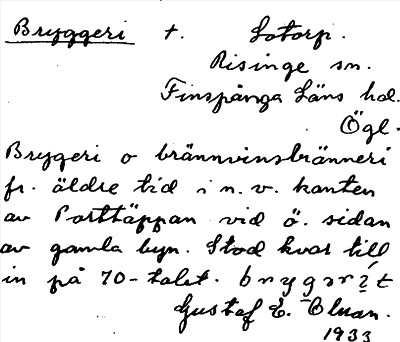 Bryggeri t. Lotorp.
Risinge sn.
Finspånga Läns hd.
Ögl.
Bryggeri o brännvinsbränneri
fr. äldre tid i n.v. kanten
av Porttäppan vid ö. sidan
av gamla byn. Stod kvar till
in på 70-talet.
Gustaf E.
1933